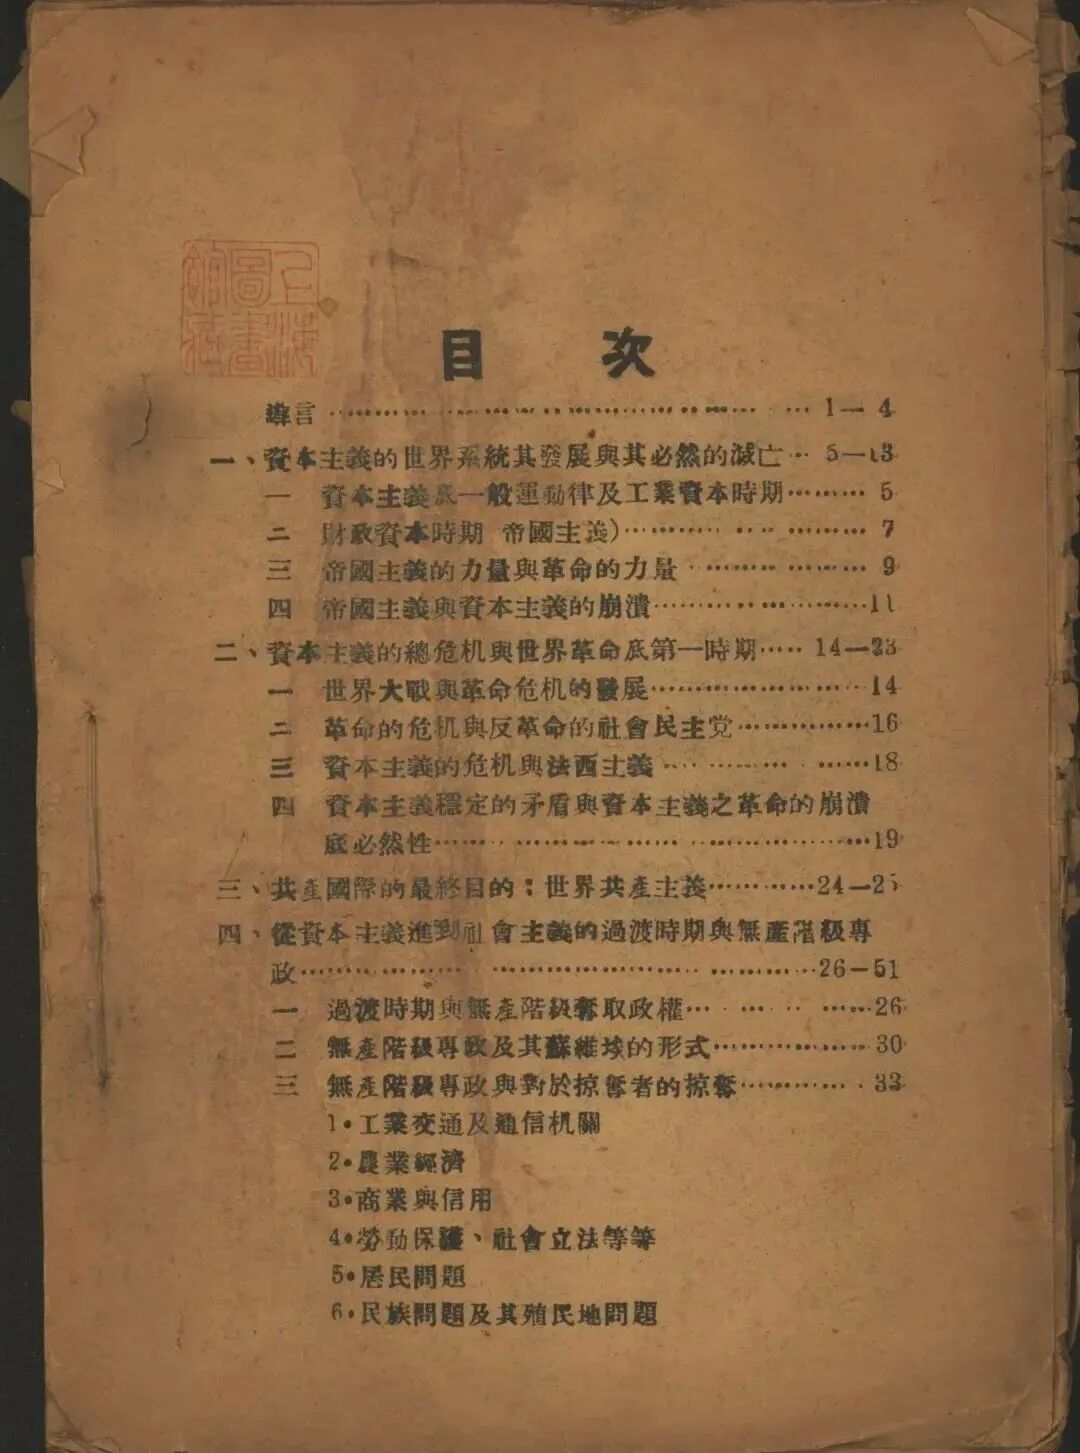 上海圖書館藏
目 次
導言……………………………………1—4
一、資本主義的世界系統其發展與其必然的滅亡…5—13
一 資本主義底一般運動律及工業資本時期………5
二 財政資本時期 帝國主義)……………………7
三 帝國主義的力量與革命的力量………………9
四 帝國主義與資本主義的崩潰…………………11
二、資本主義的總危机與世界革命底第一時期……14—23
一 世界大戰與革命危机的發展…………………14
二 革命的危机與反革命的社會民主党……………16
三 資本主義的危机與法西主義…………………18
四 資本主義穩定的矛盾與資本主義之革命的崩潰
底必然性………………………………………19
三、共產國際的最終目的:世界共產主義…………24—25
四、從資本主義進到社會主義的過渡時期與無產階級專
政………………………………………………26—51
一 過渡時期與無產階級奪取政權………………26
二 無產階級專政及其蘇維埃的形式………………30
三 無產階級專政與對於掠奪者的掠奪……………33
1·工業交通及通信机關
2·農業經濟
3·商業與信用
4·勞動保護、社會立法等等
5·居民問題
6·民族問題及其殖民地問題